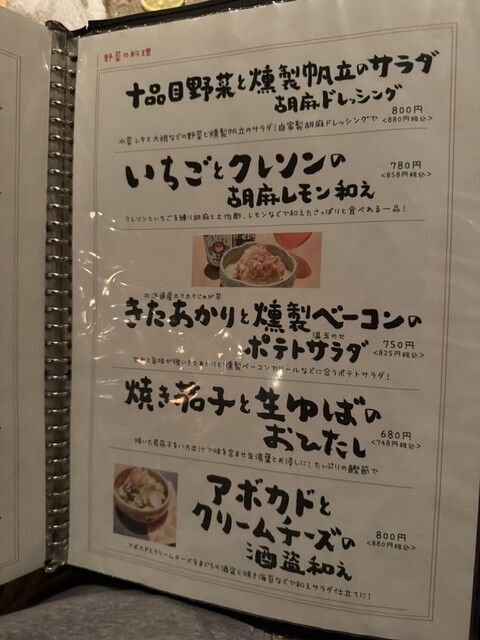 野菜の料理
十品目野菜と燻製帆立のサラダ
胡麻ドレッシング
800円
<880円税込>
水菜レタス大根などの野菜と燻製帆立のサラダ!自家製胡麻ドレッシングで
いちごとクレソンの
胡麻レモン和え
780円
<858円税込>
クレソンといちごを練り胡麻と土佐酢、レモンなどで和えたさっぱりと食べれる一品!
北海道産ホクホクじゃが芋
きたあかりと燻製ベーコンの
温玉のせ
ポテトサラダ
750円
<825円税込>
旨味が強いきたあかりと燻製ベーコンでビールなどに合うポテトサラダ!
焼き茄子と生ゆばの
おひたし
680円
<748円税込>
焼いた長茄子を八方出汁で味を含ませ生湯葉とお浸しに!たっぷりの鰹節で
アボカドと
クリームチーズの
酒盗和え
800円
<880円税込>
アボカドとクリームチーズをまぐろの酒盗と焼き海苔などで和えサラダ仕立てに!